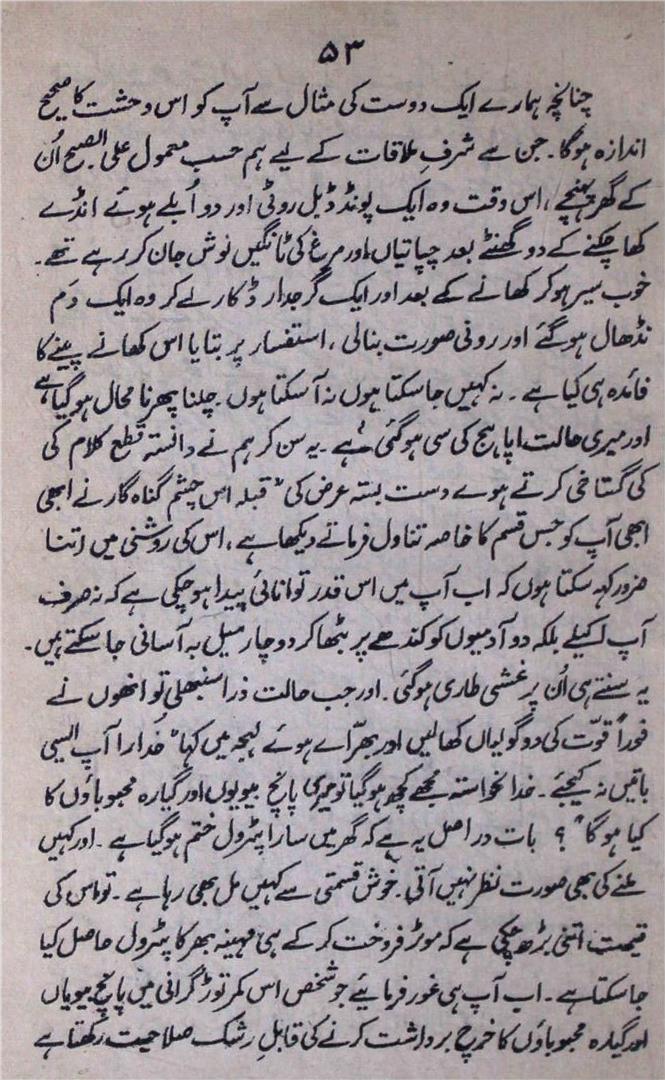 ۵۳
چنانچہ ہمارے ایک دوست کی مثال سے آپ کو اس وحشت کا صحیح
اندازہ ہوگا۔ جن سے شرفِ ملاقات کے لیے ہم حسب معمول علی الصبح اُن
کے گھر پہنچے، اس وقت وہ ایک پونڈ ڈبل روٹی اور دو اُبلے ہوئے انڈے
کھا چکنے کے دو گھنٹے بعد چپاتیاں اور مرغ کی ٹانگیں نوش جان کر رہے تھے۔
خوب سیر ہوکر کھانے کے بعد اور ایک گرجدار ڈکار لے کر وہ ایک دَم
نڈھال ہوگئے اور رونی صورت بنالی، استفسار پر بتایا اس کھانے پینے کا
فائدہ ہی کیا ہے۔ نہ کہیں جا سکتا ہوں نہ آ سکتا ہوں۔ چلنا پھرنا محال ہوگیا ہے
اور میری حالت اپاہج کی سی ہوگئی ہے۔ یہ سن کر ہم نے دانستہ قطع کلام کی
کی گستاخی کرتے ہوے دست بستہ عرض کی "قبلہ اس چشم گناہ گار نے ابھی
ابھی آپ کو جس قسم کا خاصہ تناول فرماتے دیکھا ہے، اس کی روشنی میں اتنا
ضرور کہہ سکتا ہوں کہ اب آپ میں اس قدر توانائی پیدا ہوچکی ہے کہ نہ صرف
آپ اکیلے بلکہ دو آدمیوں کو کندھے پر بٹھا کر دو چار میل بہ آسانی جا سکتے ہیں۔
یہ سنتے ہی اُن پر غشی طاری ہوگئی۔ اور جب حالت ذرا سنبھلی تو انھوں نے
فوراً قوّت کی دو گولیاں کھالیں اور بھرّاے ہوئے لہجہ میں کہا "خدارا آپ ایسی
باتیں نہ کیجئے۔ خدا نخواستہ مجھے کچھ ہوگیا تو میری پانچ بیویوں اور گیارہ محبوباؤں کا
کیا ہوگا"؟ بات در اصل یہ ہے کہ گھر میں سارا پٹرول ختم ہوگیا ہے۔ اور کہیں
ملنے کی بھی صورت نظر نہیں آتی۔ خوش قسمتی سے کہیں مل بھی رہا ہے۔ تو اس کی
قیمت اتنی بڑھ چکی ہے کہ موٹر فروخت کر کے ہی مہینہ بھر کا پٹرول حاصل کیا
جا سکتا ہے۔ اب آپ ہی غور فرمایئے جو شخص اس کمر توڑ گرانی میں پانچ بیویاں
اور گیارہ محبوباؤں کا خرچ برداشت کرنے کی قابلِ رشک صلاحیت رکھتا ہے